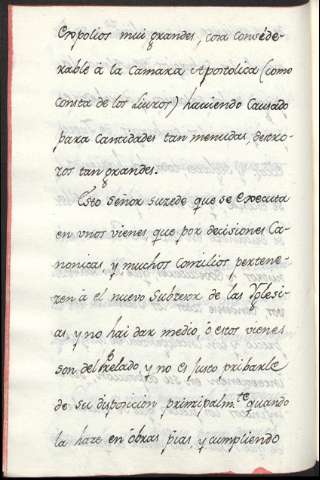 Expolios mui grandes, cosa conside-
rable à la Camara Apostolica (como
consta de los Livros) haviendo causado
para cantidades tan menudas, destro-
zos tan grandes.
Esto Señor suzede que se execuita
en unos vienes que por decisiones Ca-
nonicas, y muchos Concilios pertene-
zen à el nuevo Subzesor de las Yglesi-
as, y no hai dar medio, ò estos vienes
son del Prelado, y no es justo pribarle
de su disposicion prinzipalm.te quando
la haze en obras pias, y cumpliendo